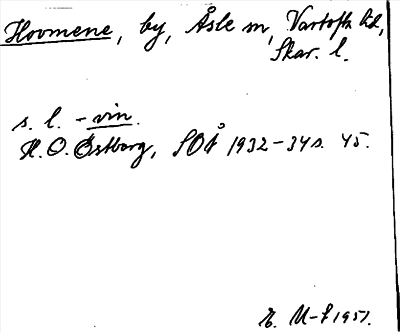 Hovmene, by, Åsle sn, Vartofta hd,
Skar. l.
s. l. -vin.
H. O. Östberg, SOÅ 1932-34 s. 45.
E. M-S 1951.